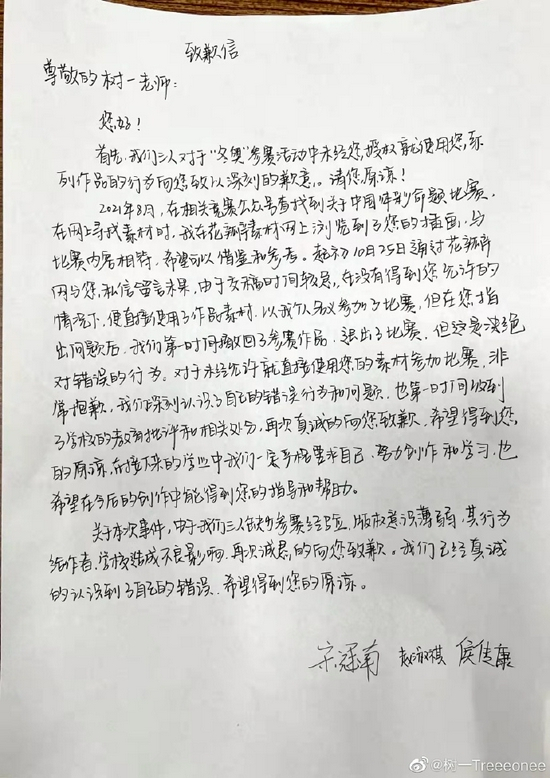 致歉信
尊敬的树一老师：
您好！
首先，我们三人对于“冬奥”参赛活动中未经您授权就使用您系
列作品的行为向您致以深刻的歉意。请您原谅！
2021年8月，在相关竞赛公众号查找到关于中国 命题比赛，
在网上寻找素材时，我在花瓣素材网上浏览到了您的插画，与
比赛内容相符，希望可以借鉴和参考。赵 于10月25日通过花瓣
网与您私信留言未果，由于交稿时间较急，在没有得到您允许的
情况下，便直接使用了作品素材，以我个人名义参加了比赛，但在您指
出问题后，我们第一时间撤回了参赛作品，退出了比赛，但这是决绝
对错误的行为。对于未经允许就直接使用您的素材参加比赛，非
常抱歉，我们深刻认识了自己的错误行为和问题，也第一时间收到
了学校的教育批评和相关处分，再次真诚的向您致歉，希望得到您
的原谅，在接下来的学业中我们一定严格要求自己，努力创作和学习，也
希望在今后的创作中能得到您的指导和帮助。
关于本次事件，由于我们三人缺少参赛经验，版权意识薄弱，其行为
给作者、学校造成不良影响，再次诚恳的向您致歉。我们已经真诚
的认识到了自己的错误，希望得到您的原谅。
宋冠南 赵淑祺 侯传康
@树一Treeeonee